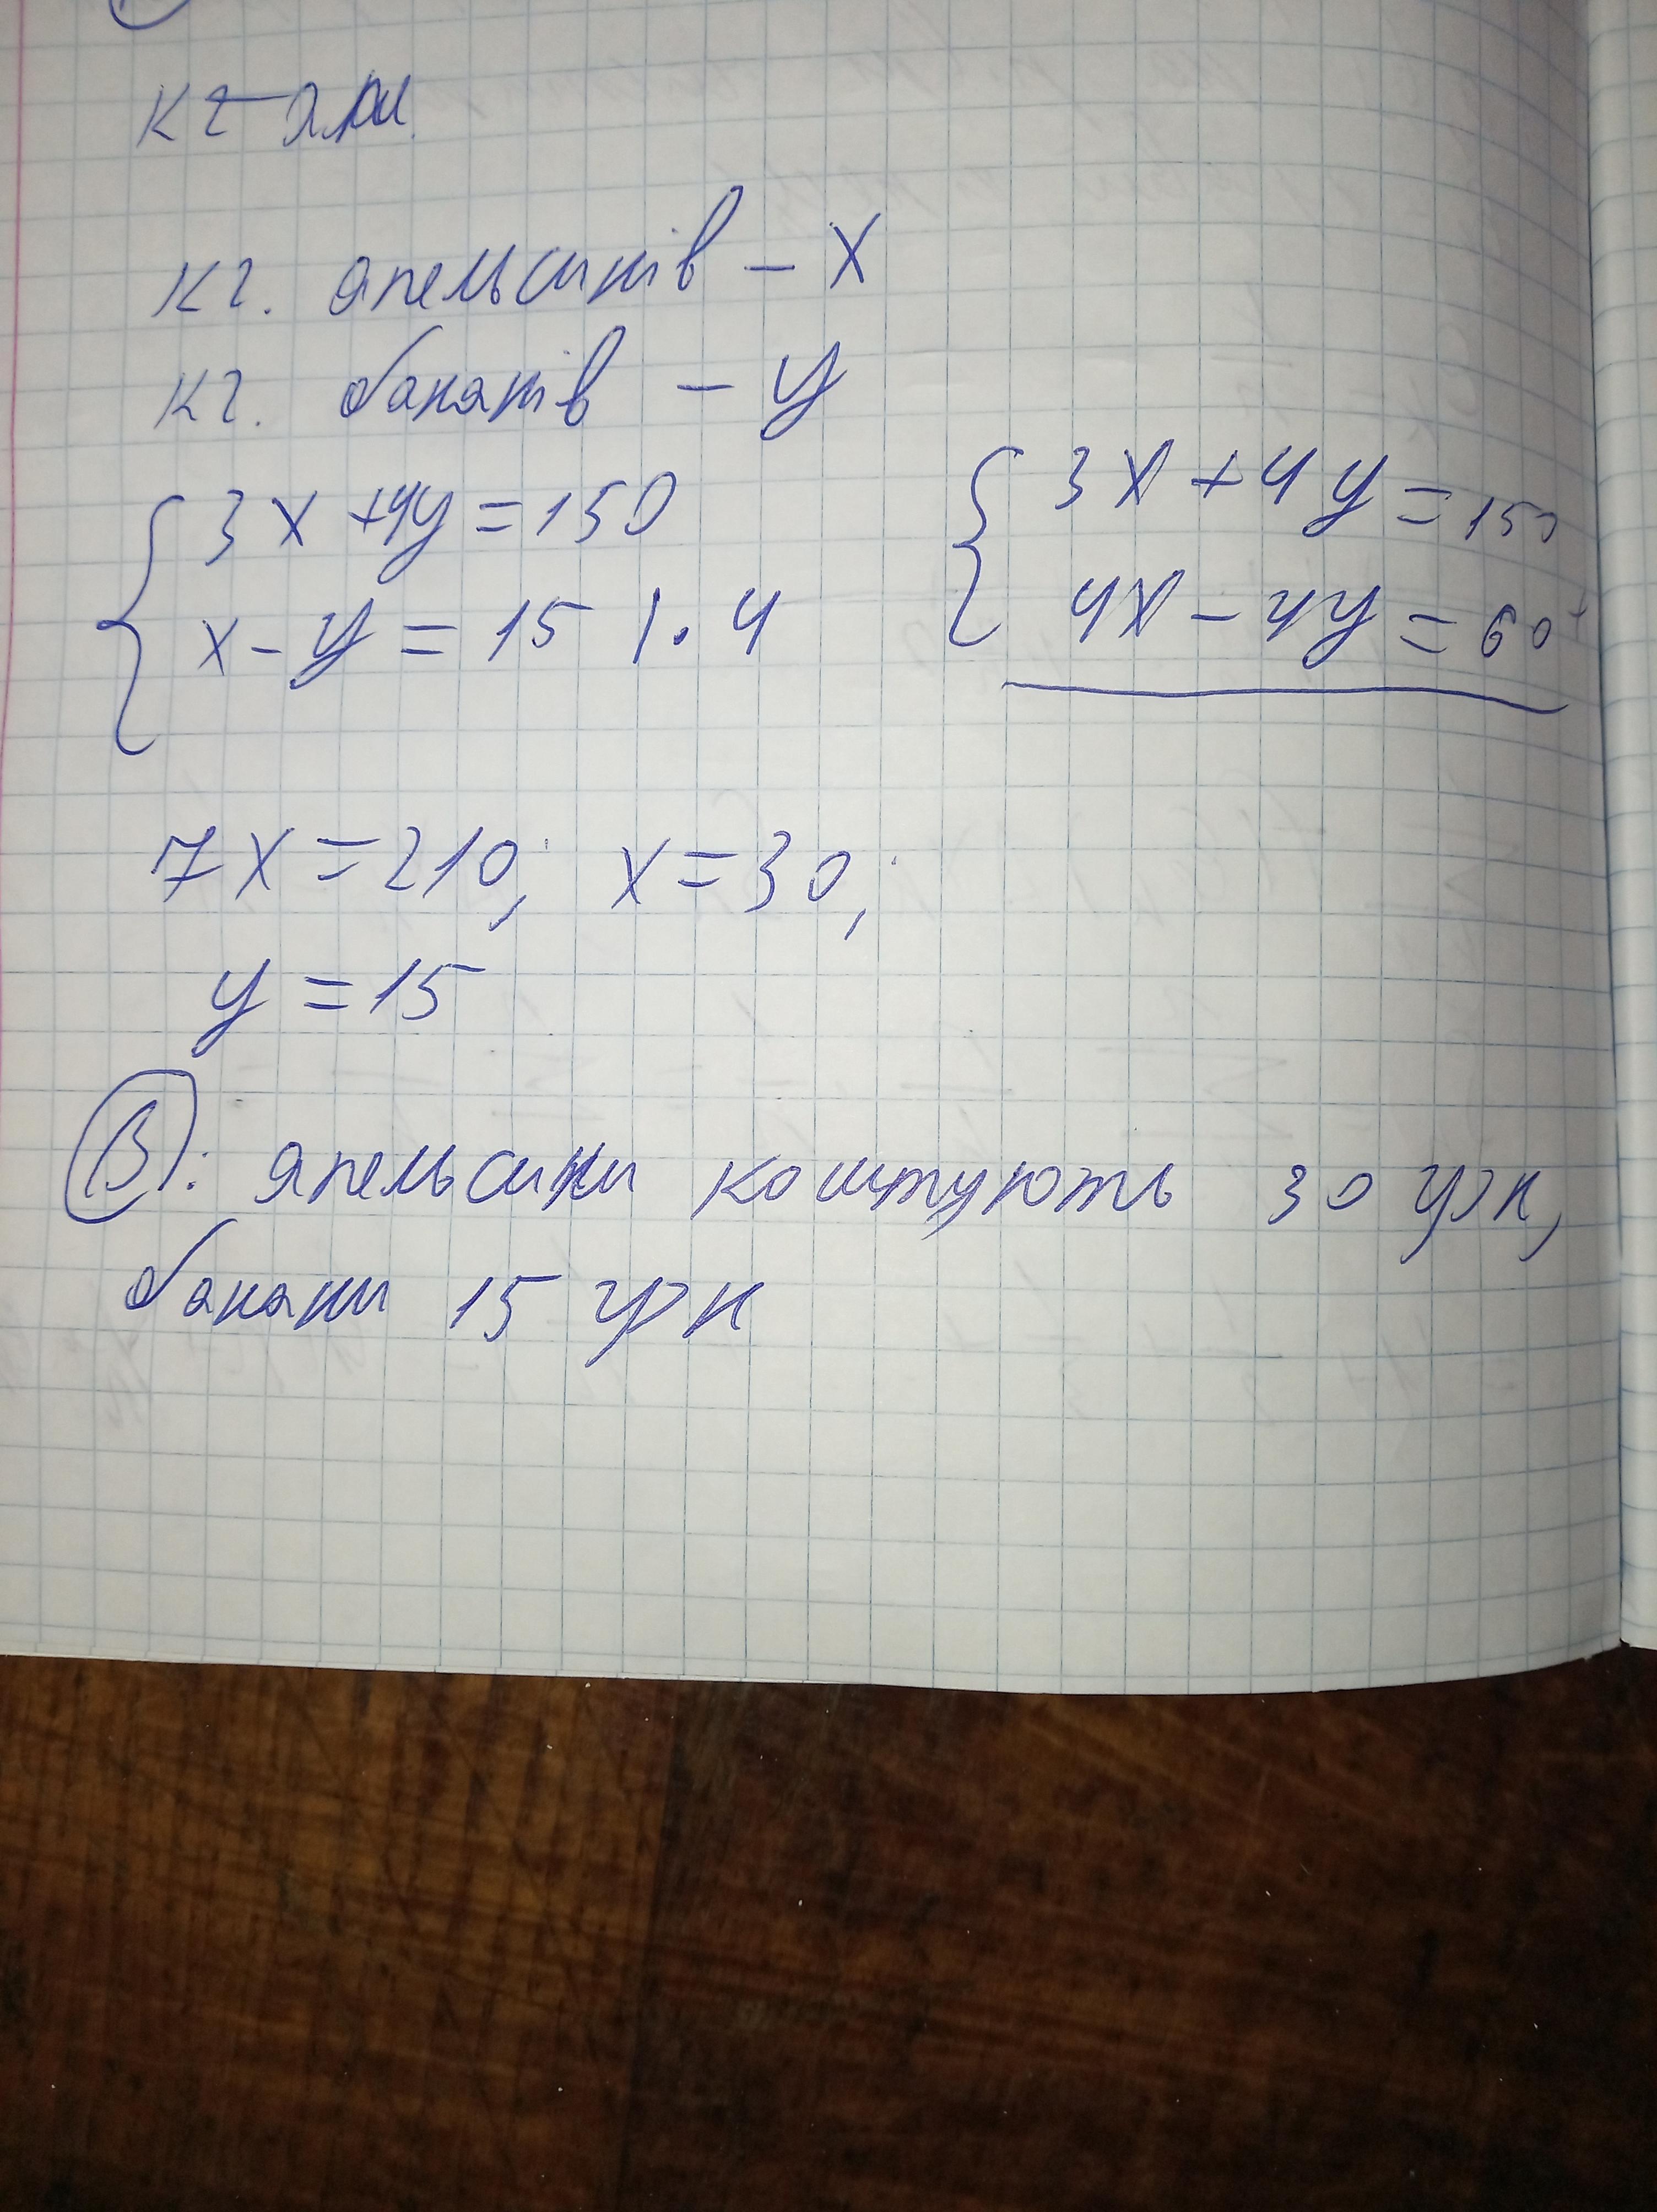 кг
кг. апельсинів - x
кг. бананів - y
{ 3x + 4y = 150
x - y = 15 | · 4
{ 3x + 4y = 150
4x - 4y = 60 +
7x = 210; x = 30;
y = 15
В: апельсини коштують 30 грн,
банани 15 грн